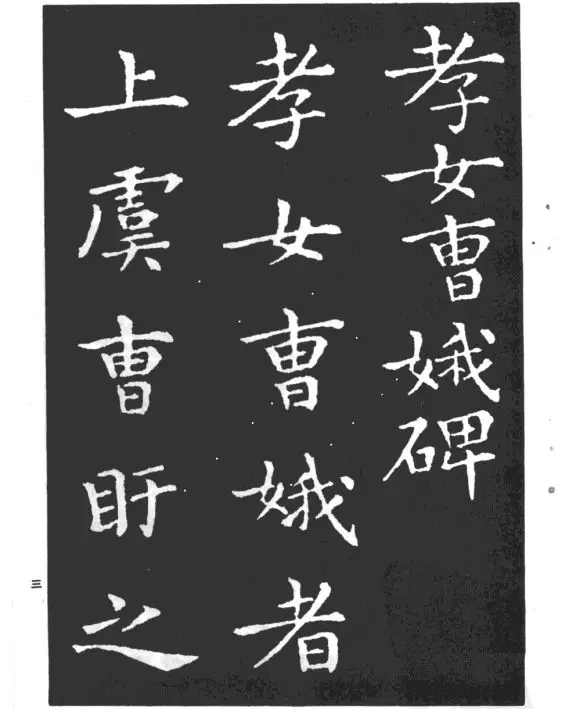 孝女曹娥碑
孝女曹娥者
上虞曹盱之
三